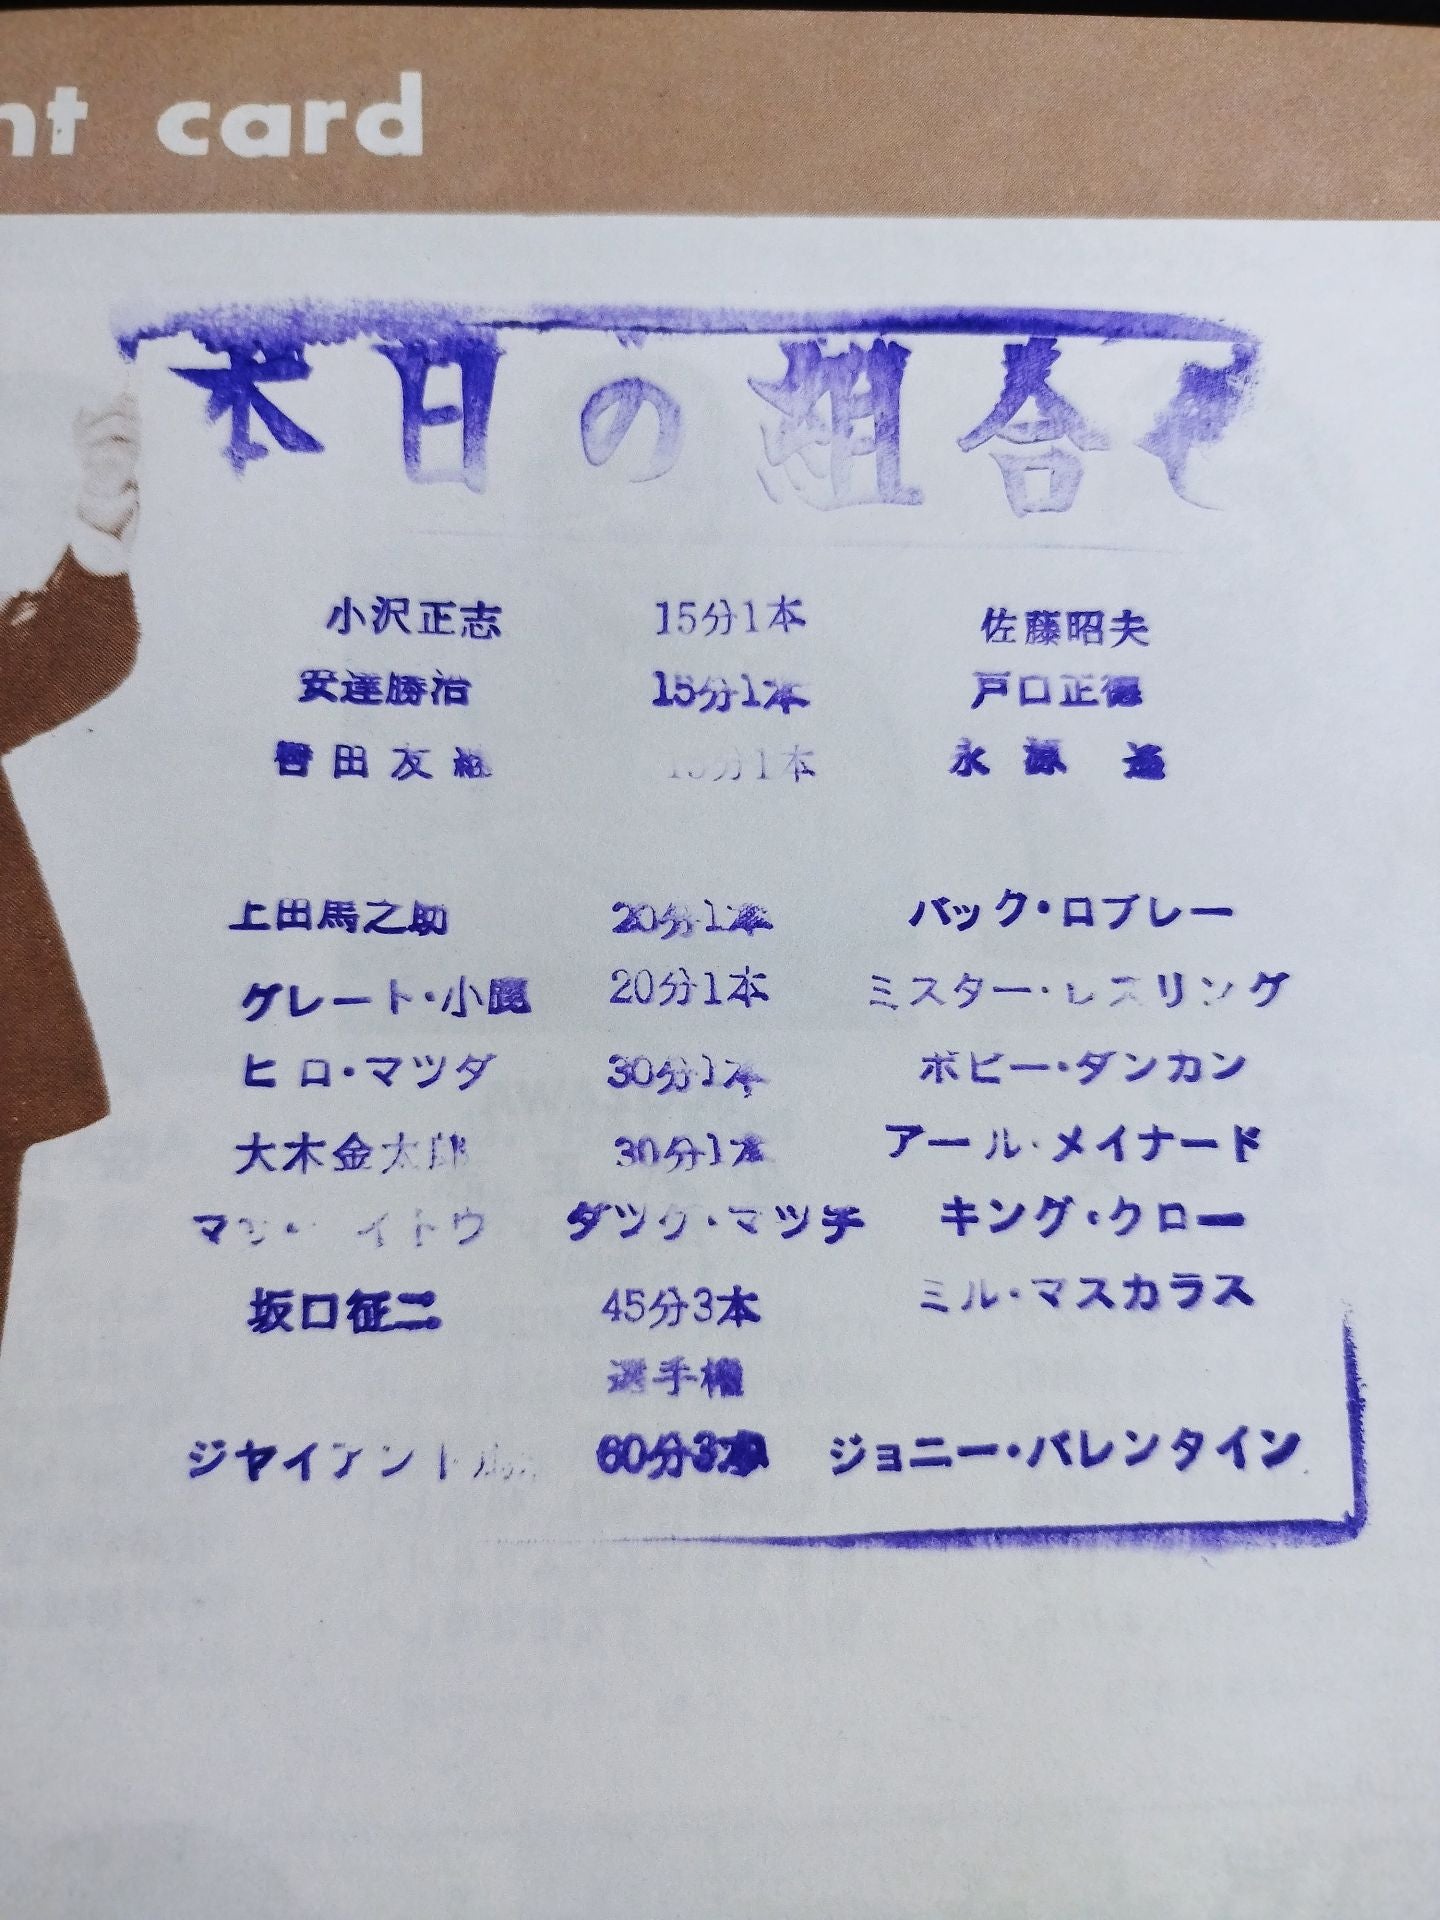 nt card
本日の組合
小沢正志 15分1本 佐藤昭夫
安達勝治 15分1本 戸口正徳
田友 15分1本 永源遥
上田馬之助 20分1本 バック・ロブレー
グレート・小鹿 20分1本 ミスター・レスリング
ヒロ・マツダ 30分1本 ボビー・ダンカン
大木金太郎 30分1本 アール・メイナード
マツ・ イトウ ダツグ・マツチ キング・クロー
坂口征二 45分3本 ミル・マスカラス
選手権
ジャイアント 60分3本 ジョニー・バレンタイン